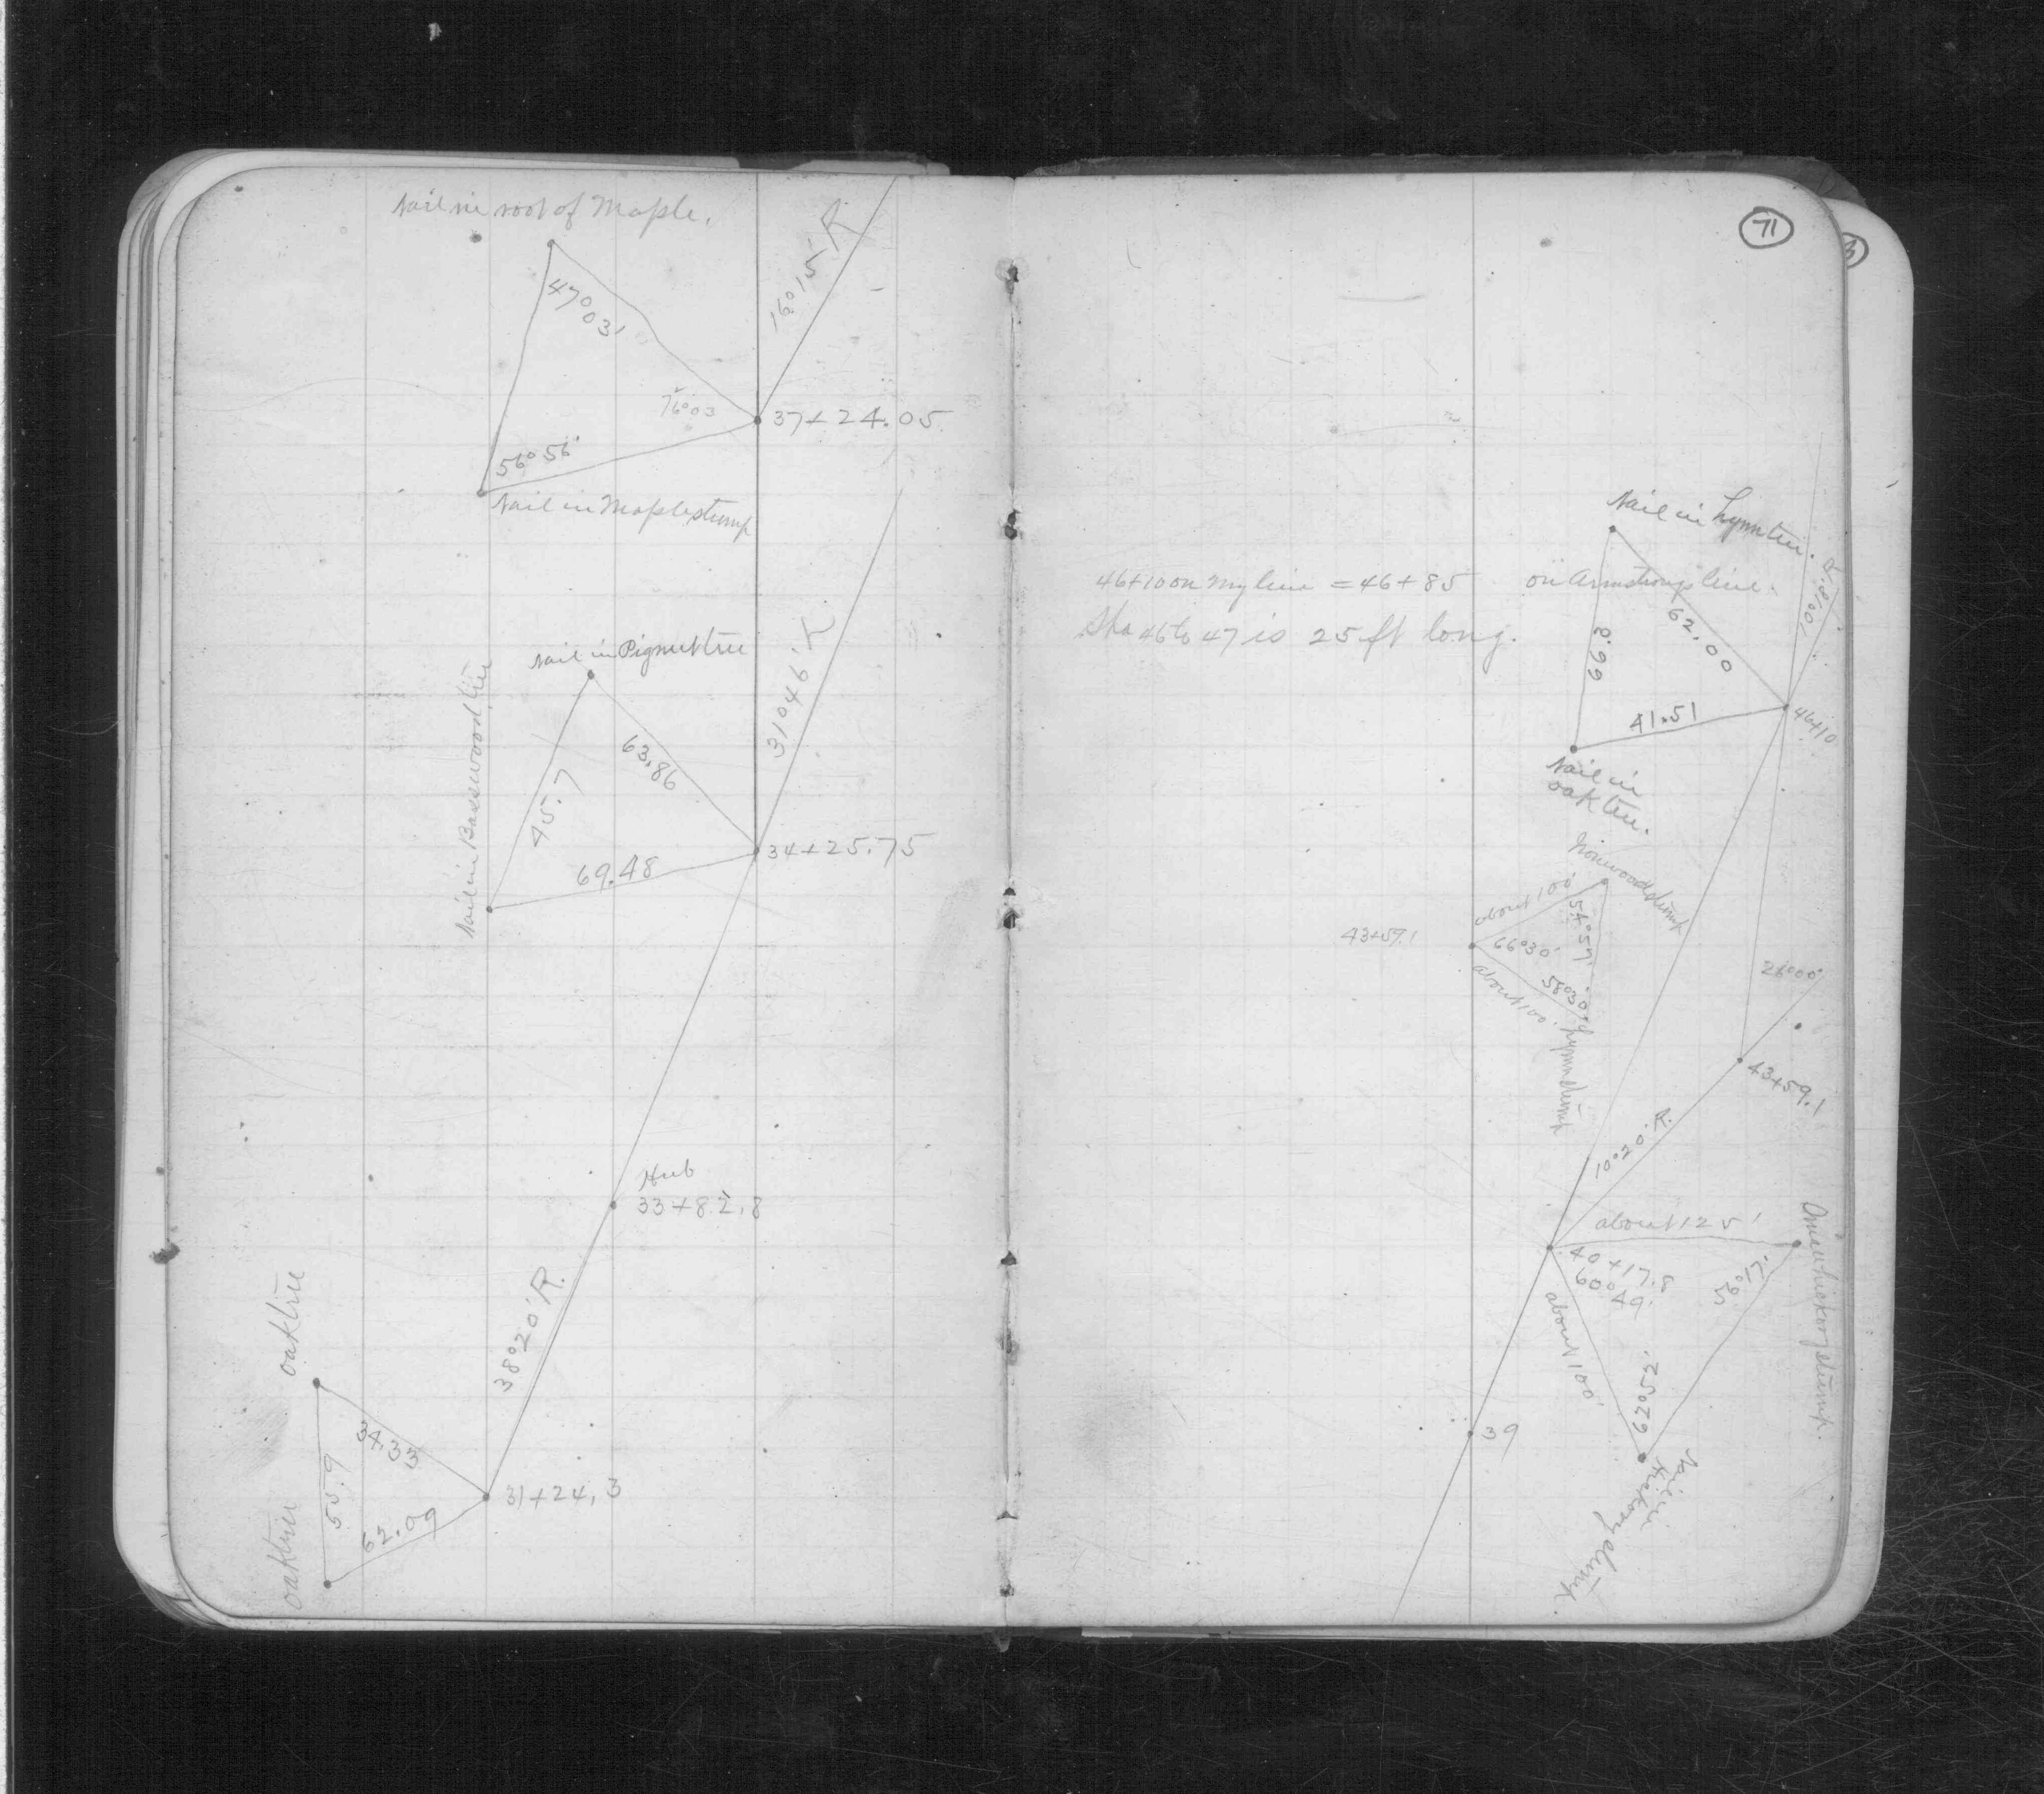 Nail in root of Maple.
47°03'
16°15' R
76°03
37+24.05
56°56'
Nail in Maple stump
Nail in Pignut tree
Nail in Basswood tree
31°46' R
63.86
45.7
69.48
34+25.75
Hub
33+82.8
38°20' R.
oak tree
34.33
55.9
62.09
31+24.3
oak tree
71
Nail in Lynn tree.
46+10 on my line = 46+85 on Armstrongs line.
Sta 46 to 47 is 25 ft long.
62.00
66.8
41.51
46+10
Nail in
oak tree.
Ironwood stump
about 100'
54°57'
43+57.1
66°30'
58°30'
about 100'
Lynn stump
26°00'
43+59.1
10°20' R.
about 125'
40+17.8
60°49'
56°17'
about 100'
62°52'
hickory stump.
39
Nail in
Hickory stump